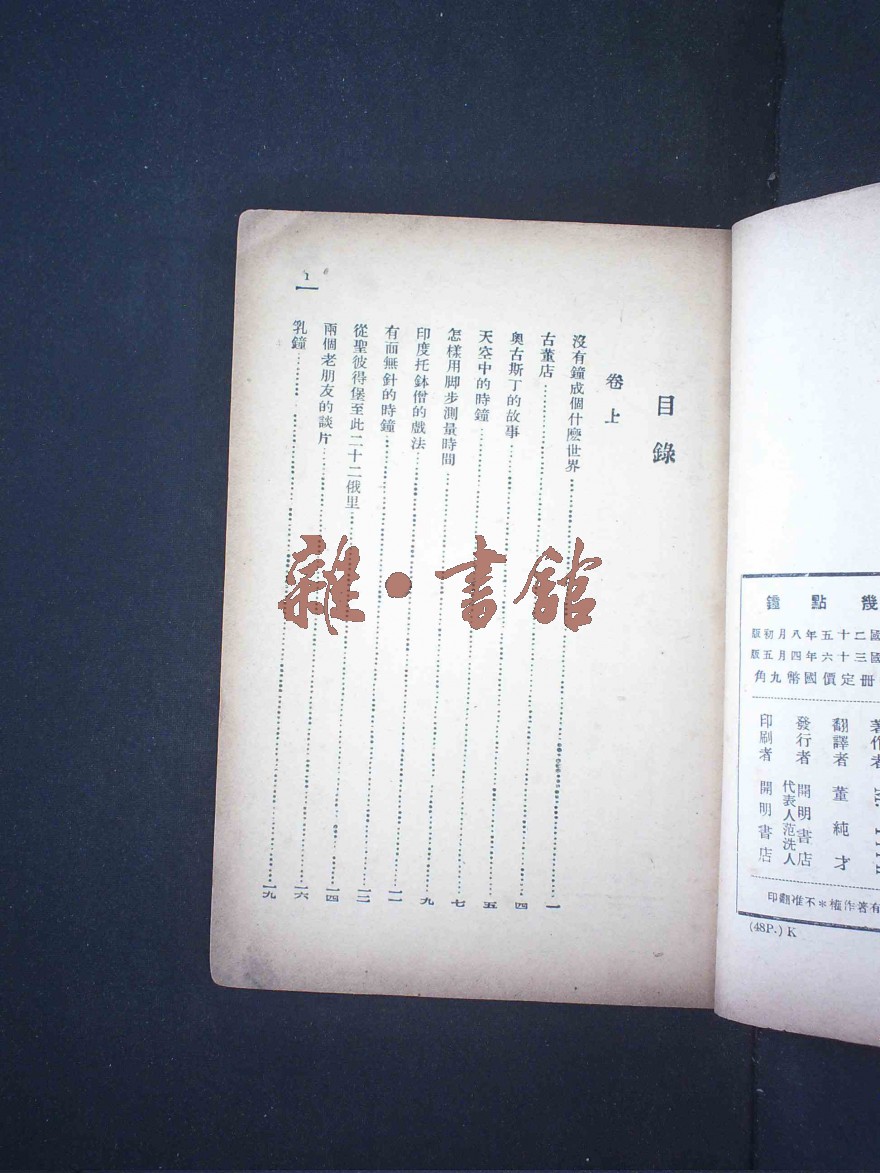 幾點鐘
國二十五年八月初版
國三十六年四月五版
冊定價國幣九角
著作者
翻譯者 董純才
發行者 開明書店
代表人范洗人
印刷者 開明書店
有著作權*不准翻印
(48P.) K
目錄
卷上
沒有鐘成個什麼世界……一
古董店……四
奧古斯丁的故事……五
天空中的時鐘……七
怎樣用脚步測量時間……九
印度托鉢僧的戲法……一一
有面無針的時鐘……一二
從聖彼得堡至此二十二俄里……一四
兩個老朋友的談片……一六
乳鐘……一九
1
雜·書館